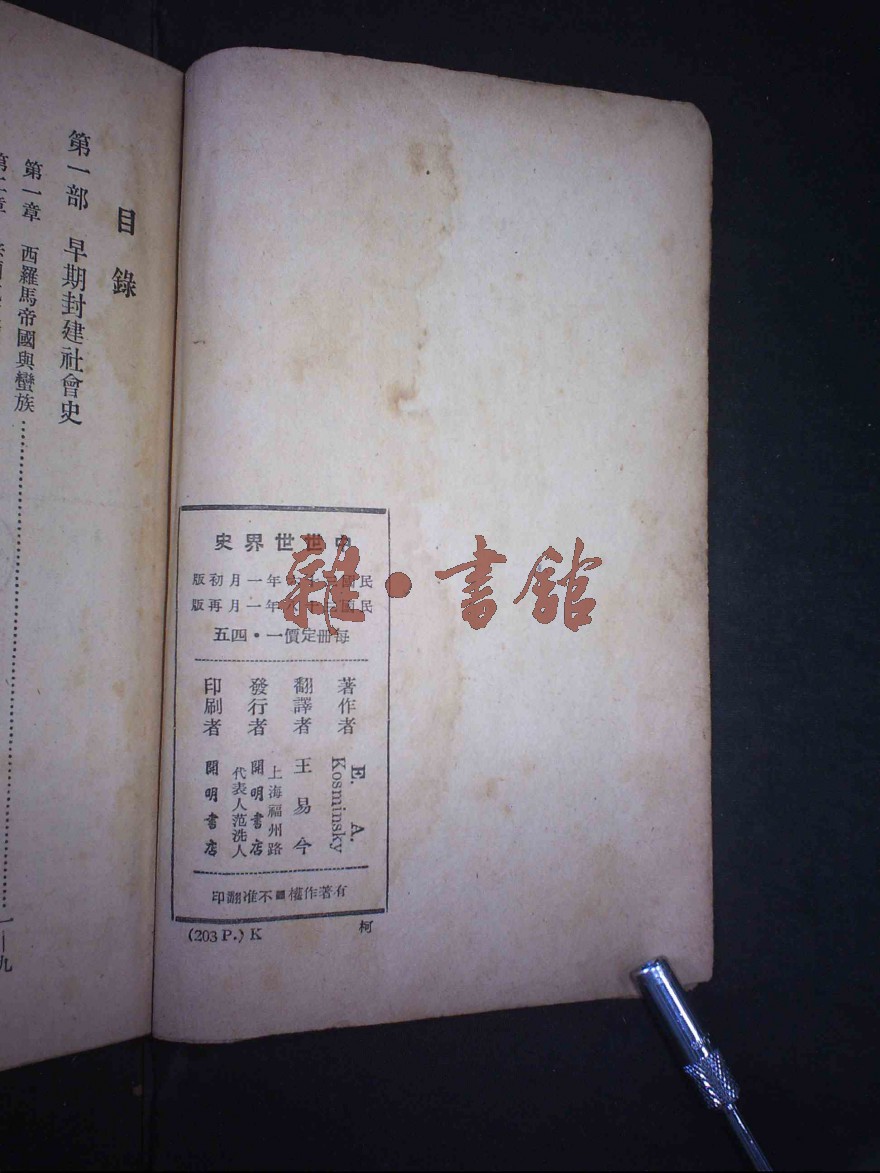 中世世界史
民國三十六年一月初版
民國三十八年一月再版
每冊定價一・四五
著作者 E. A. Kosminsky
翻譯者 王易今
發行者 上海福州路 開明書店 代表人范洗人
印刷者 開明書店
有著作權不准翻印
(203 P.) K
柯
目錄
第一部 早期封建社會史
第一章 西羅馬帝國與蠻族
一—九
第二章
雜・書館